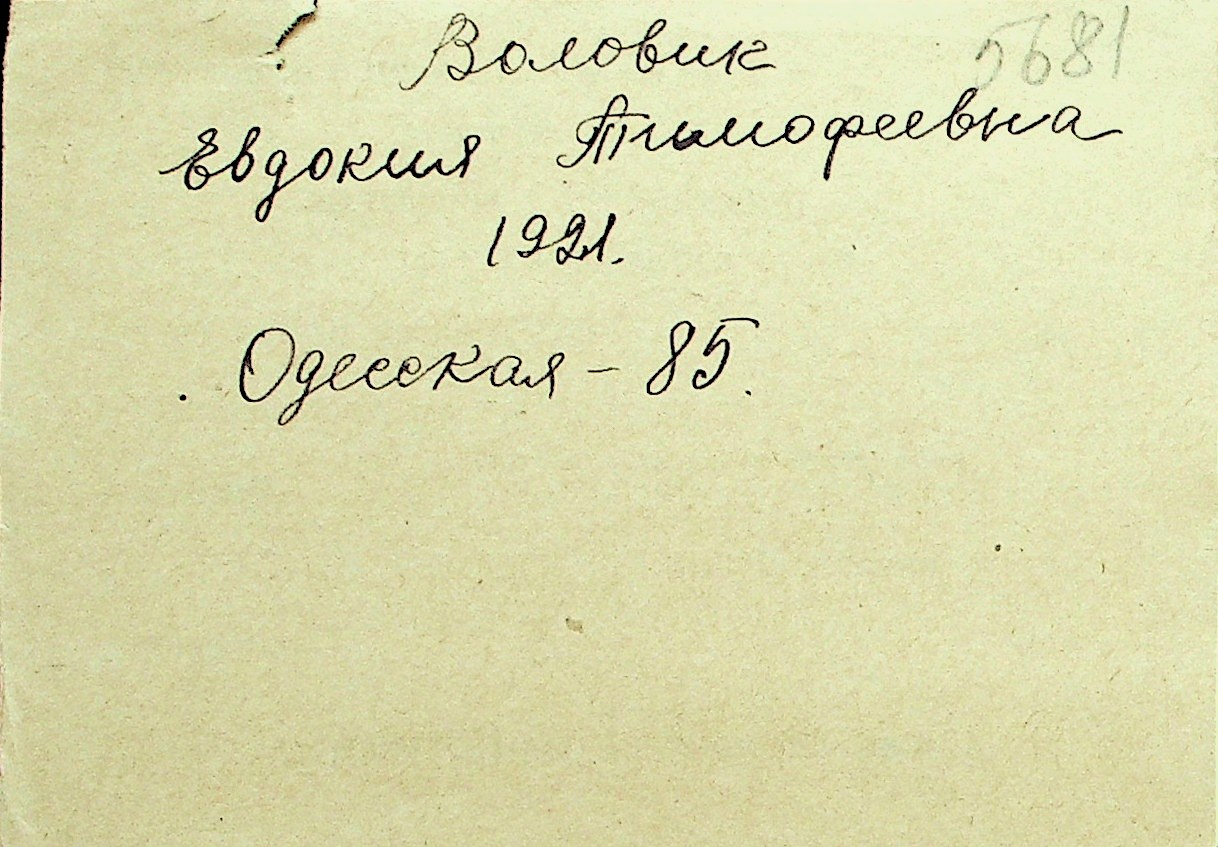 Воловик 5681
Евдокия Тимофеевна
1921.
Одесская - 85.